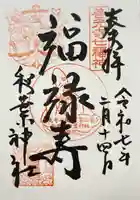 奉拝
令和七年
二月十四日
福禄寿
秋葉神社